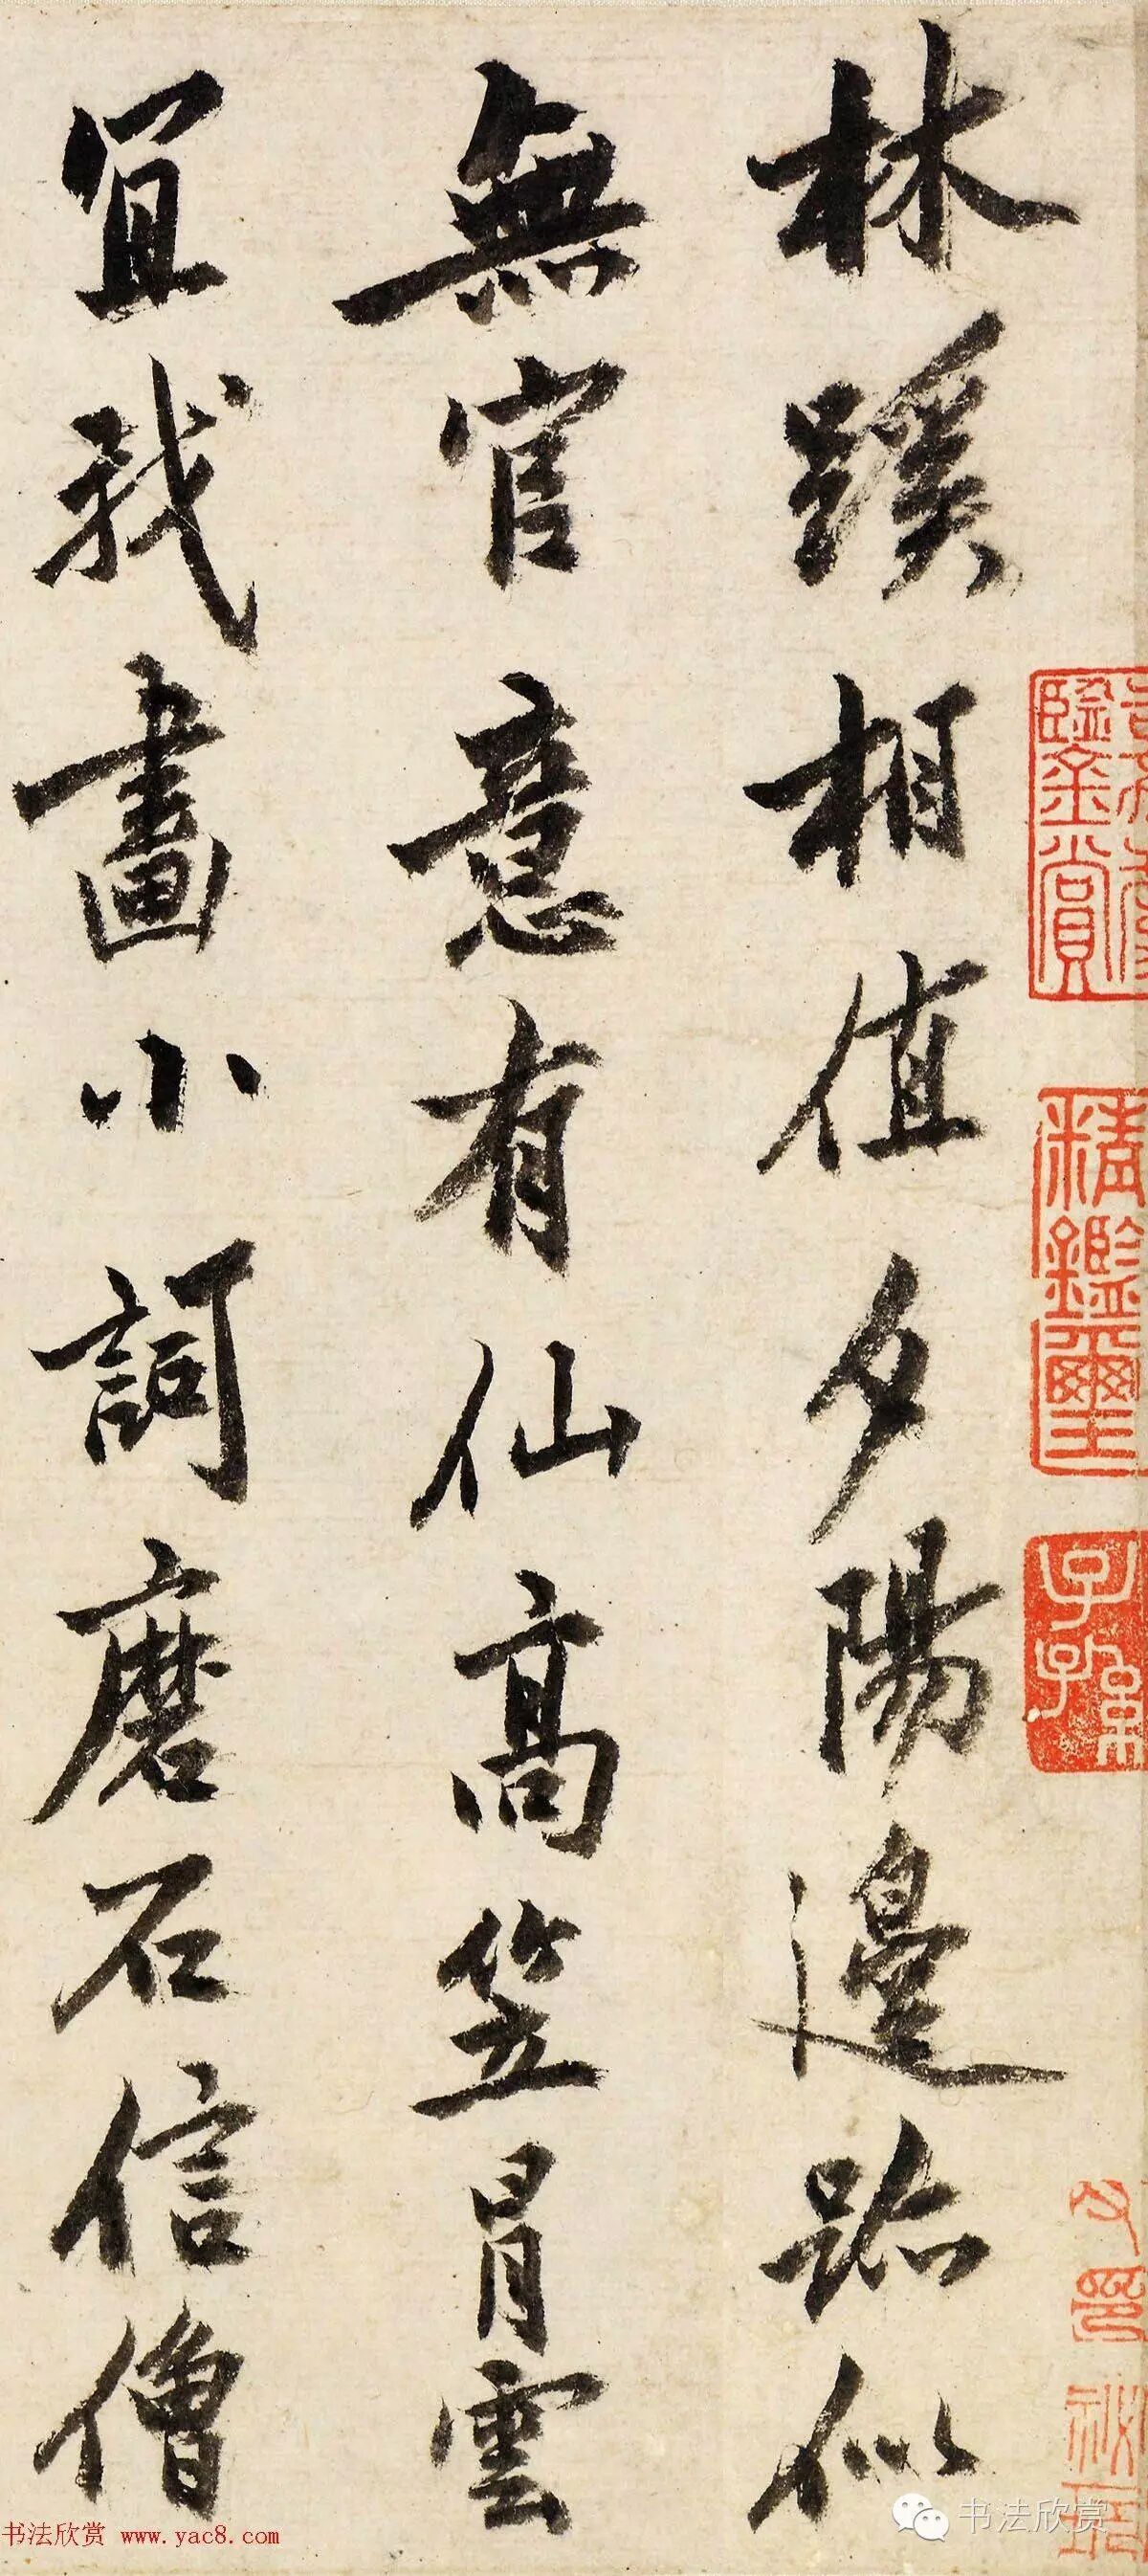 林蹊相值夕陽邊跡似
無官意有仙高笠冒雲
宜我畫小詞磨石信僧
鑒賞
精鑑璽
子孫
书法欣赏
书法欣赏 www.yac8.com